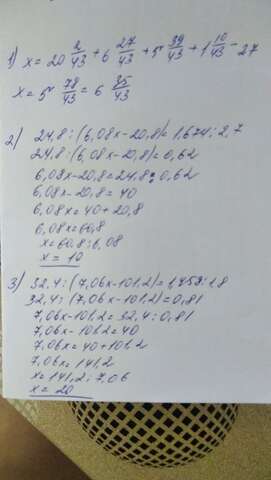 1) x = 20 2/43 + 6 27/43 + 5 39/43 + 1 10/43 - 27
x = 5 78/43 = 6 35/43
2) 24,8 : (6,08x - 20,8) = 1,674 : 2,7
24,8 : (6,08x - 20,8) = 0,62
6,08x - 20,8 = 24,8 : 0,62
6,08x - 20,8 = 40
6,08x = 40 + 20,8
6,08x = 60,8
x = 60,8 : 6,08
x = 10
3) 32,4 : (7,06x - 101,2) = 1,458 : 1,8
32,4 : (7,06x - 101,2) = 0,81
7,06x - 101,2 = 32,4 : 0,81
7,06x - 101,2 = 40
7,06x = 40 + 101,2
7,06x = 141,2
x = 141,2 : 7,06
x = 20